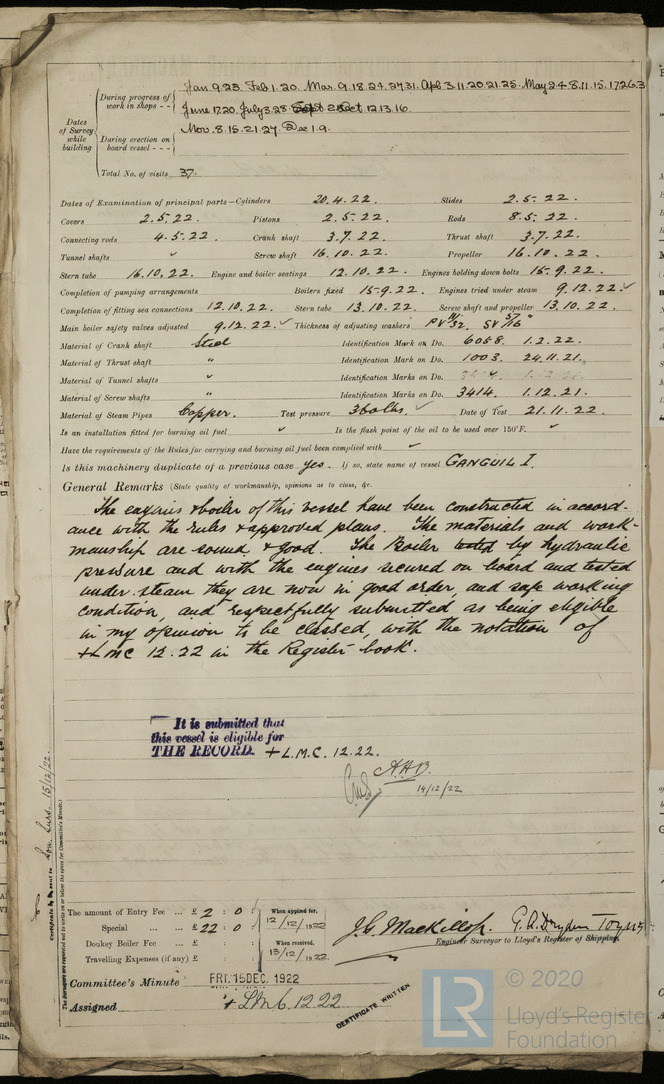 Dates of Survey while building
During progress of work in shops - - Jan 9.23. Feb 1.20. Mar. 9.18.24.27.31. Apl 3.11.20.21.25. May 2.4.8.11.15.17.26.3
June 17.20. July 3.28. Oct 12.13.16.
During erection on board vessel - - - Nov. 8.15.21.27. Dec 1.9.
Total No. of visits 37.
Dates of Examination of principal parts—Cylinders 20.4.22. Slides 2.5.22.
Covers 2.5.22. Pistons 2.5.22. Rods 8.5.22.
Connecting rods 4.5.22. Crank shaft 3.7.22. Thrust shaft 3.7.22.
Tunnel shafts ✓ Screw shaft 16.10.22. Propeller 16.10.22.
Stern tube 16.10.22. Engine and boiler seatings 12.10.22. Engines holding down bolts 15.9.22.
Completion of pumping arrangements Boilers fixed 15.9.22. Engines tried under steam 9.12.22. ✓
Completion of fitting sea connections 12.10.22. Stern tube 13.10.22. Screw shaft and propeller 13.10.22.
Main boiler safety valves adjusted 9.12.22. ✓ Thickness of adjusting washers PV 11/32. SV 5/16"
Material of Crank shaft Steel Identification Mark on Do. 6058. 1.2.22.
Material of Thrust shaft " Identification Mark on Do. 1003. 24.11.21.
Material of Tunnel shafts ✓ Identification Marks on Do.
Material of Screw shafts " Identification Marks on Do. 3414. 1.12.21.
Material of Steam Pipes Copper. Test pressure 360 lbs. ✓ Date of Test 21.11.22.
Is an installation fitted for burning oil fuel ✓ Is the flash point of the oil to be used over 150°F. ✓
Have the requirements of the Rules for carrying and burning oil fuel been complied with ✓
Is this machinery duplicate of a previous case yes. If so, state name of vessel GANGUIL I.
General Remarks (State quality of workmanship, opinions as to class, &c.
The engines & boiler of this vessel have been constructed in accord-
ance with the rules & approved plans. The materials and work-
manship are sound & good. The Boiler tested by hydraulic
pressure and with the engines secured on board and tested
under steam they are now in good order, and safe working
condition, and respectfully submitted as being eligible
in my opinion to be classed, with the notation of
+LMC 12.22 in the Register book.
It is submitted that
this vessel is eligible for
THE RECORD. + L.M.C. 12.22.
A.A.B.
14/12/22
Certificate to be sent to Lon. Surs. 15/12/22.
The Surveyors are requested not to write on or below the space for Committee's Minute.
The amount of Entry Fee ... £ 2 : 0 : When applied for,
Special ... £ 22 : 0 : 12/12/1922
Donkey Boiler Fee ... £ : : When received,
Travelling Expenses (if any) £ : : 13/12/1922.
J.G. Mackillop. G.A. Dryden Toyne
Engineer Surveyor to Lloyd's Register of Shipping.
Committee's Minute FRI. 15 DEC. 1922
Assigned + L.M.C. 12.22
CERTIFICATE WRITTEN
LR
© 2020
Lloyd's Register
Foundation